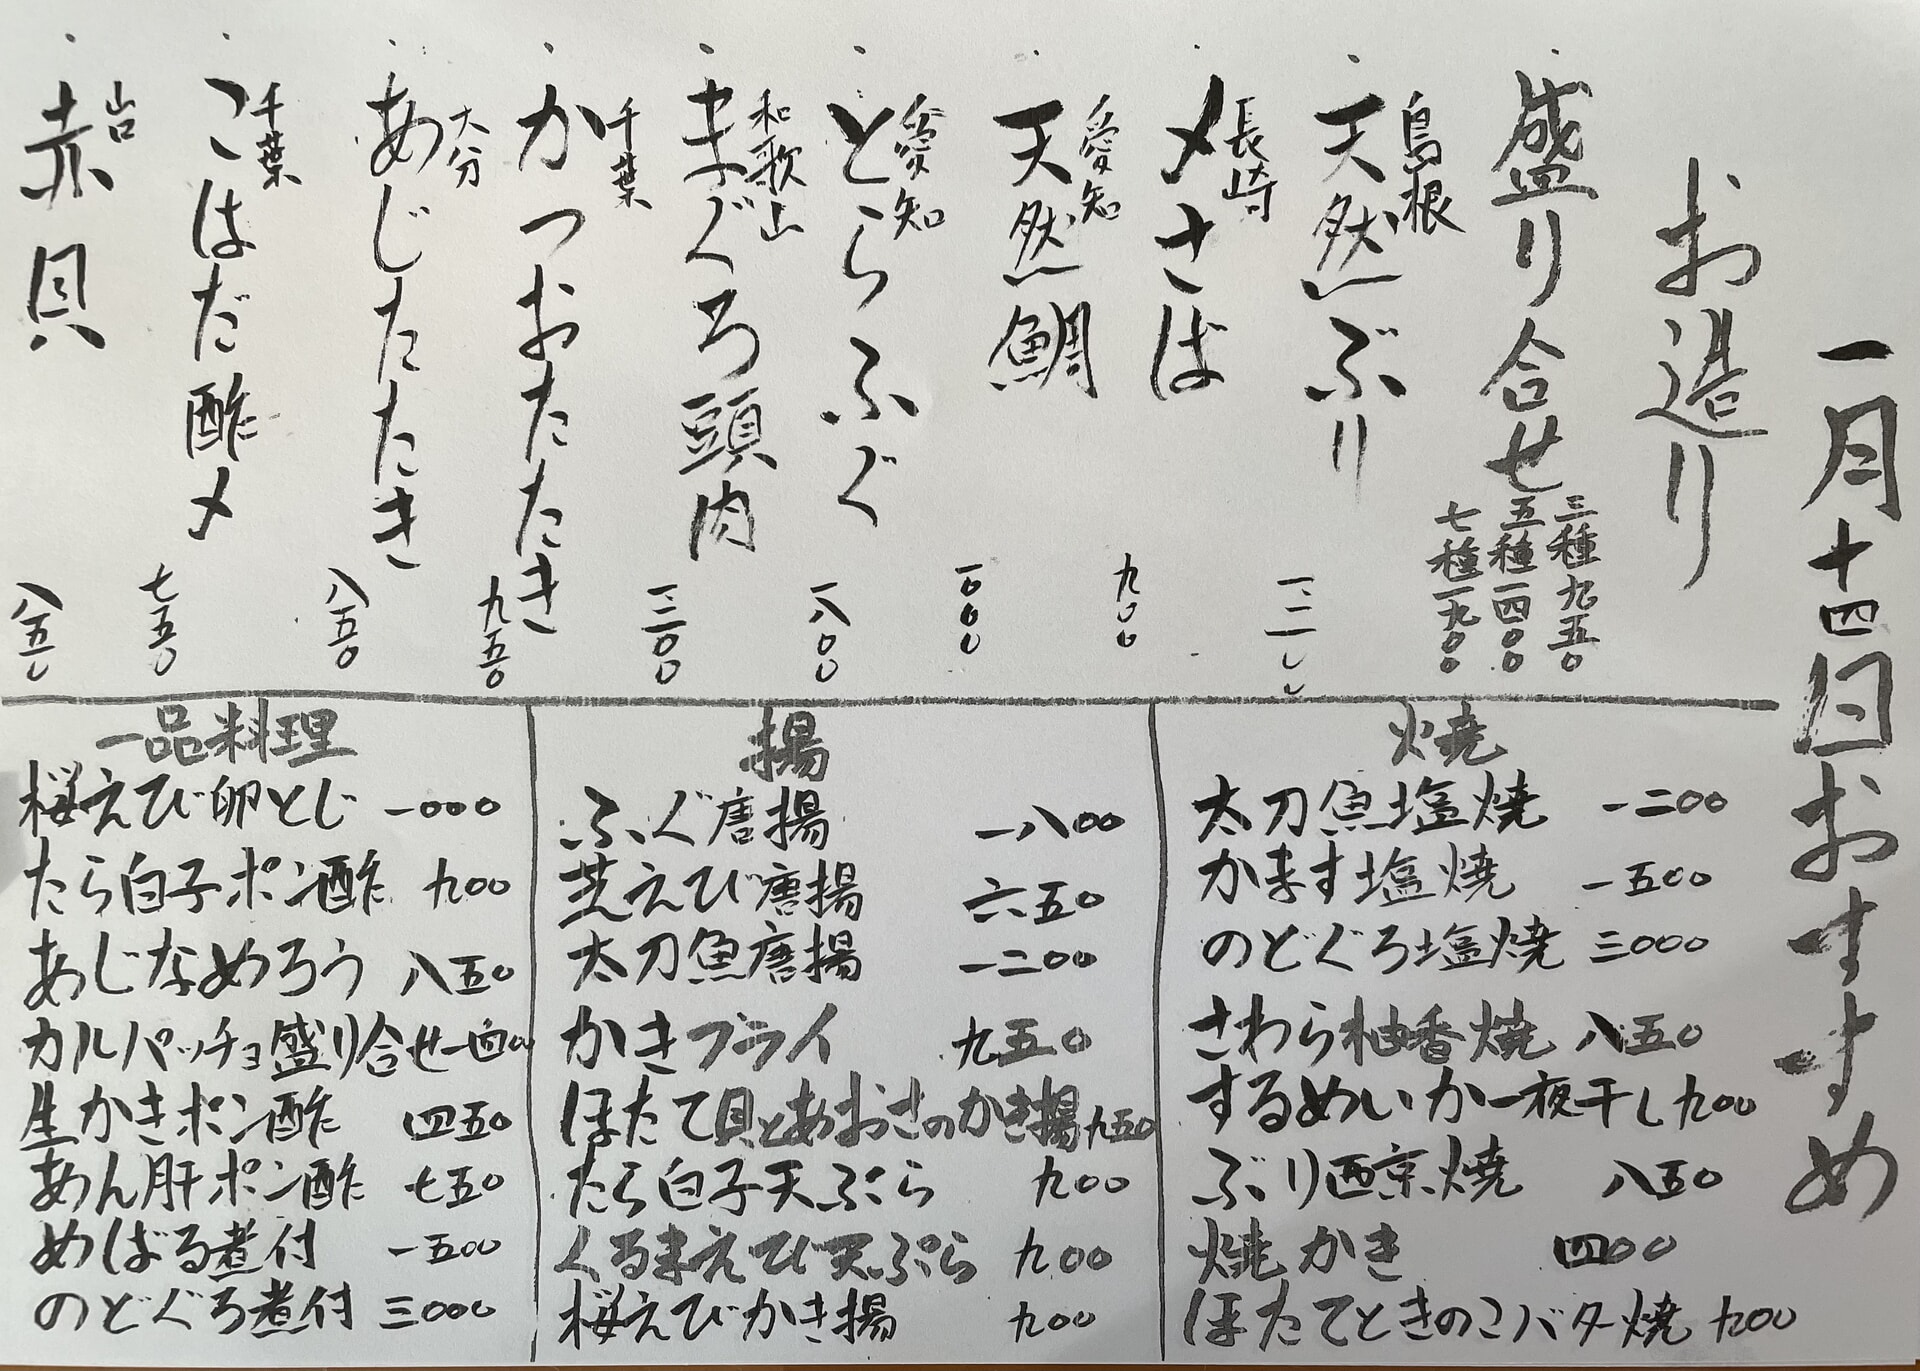 一月十四日おすすめ
お造り
盛り合せ
三種九五〇
五種一四〇〇
七種一九〇〇
島根
天然ぶり
長崎
〆さば 九〇〇
愛知
天然鯛 一〇〇〇
愛知
とらふぐ 一八〇〇
和歌山
まぐろ頭肉 一三〇〇
千葉
かつおたたき 九五〇
大分
あじたたき 八五〇
千葉
こはだ酢〆 七五〇
山口
赤貝 八五〇
焼
太刀魚塩焼 一二〇〇
かます塩焼 一五〇〇
のどぐろ塩焼 三〇〇〇
さわら柚香焼 八五〇
するめいか一夜干し 九〇〇
ぶり西京焼 八五〇
焼かき 四〇〇
ほたてときのこバター焼 九〇〇
揚
ふぐ唐揚 一八〇〇
芝えび唐揚 六五〇
太刀魚唐揚 一二〇〇
かきフライ 九五〇
ほたて貝とあおさのかき揚 九五〇
たら白子天ぷら 九〇〇
くるまえび天ぷら 九〇〇
桜えびかき揚 九〇〇
一品料理
桜えび卵とじ 一〇〇〇
たら白子ポン酢 九〇〇
あじなめろう 八五〇
カルパッチョ盛り合せ 一四〇〇
生かきポン酢 四五〇
あん肝ポン酢 七五〇
めばる煮付 一五〇〇
のどぐろ煮付 三〇〇〇